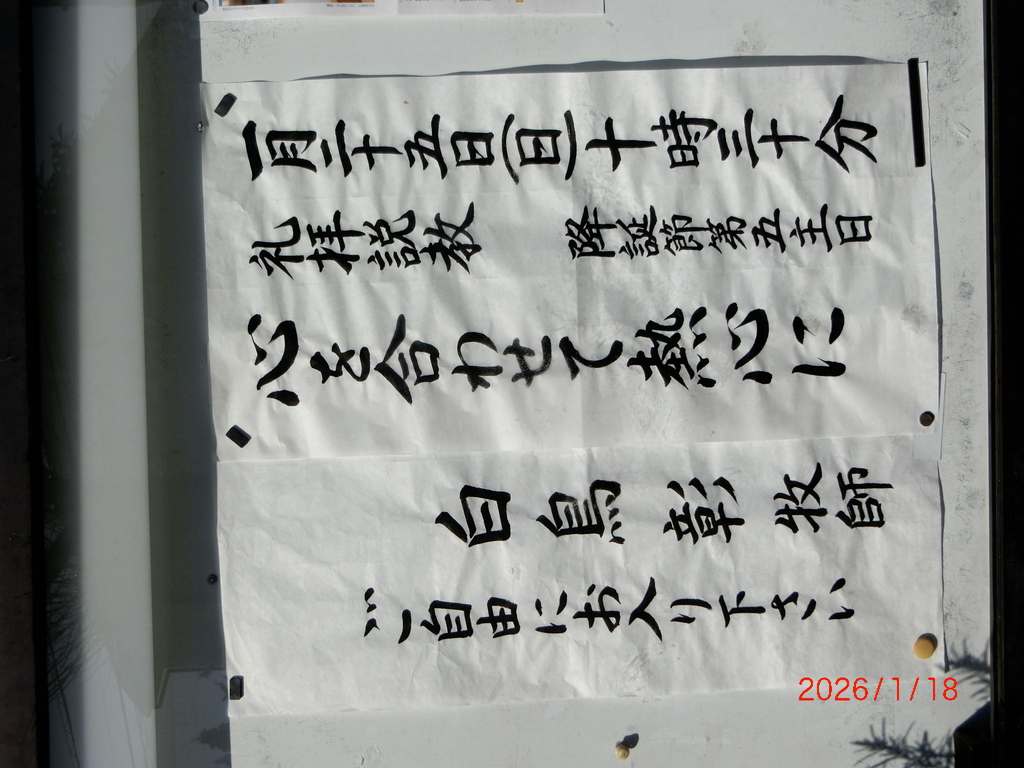 一月二十五日(日)十時三十分
礼拝説教 降誕節第五主日
心を合わせて熱心に
白鳥彰牧師
ご自由にお入り下さい
2026/1/18